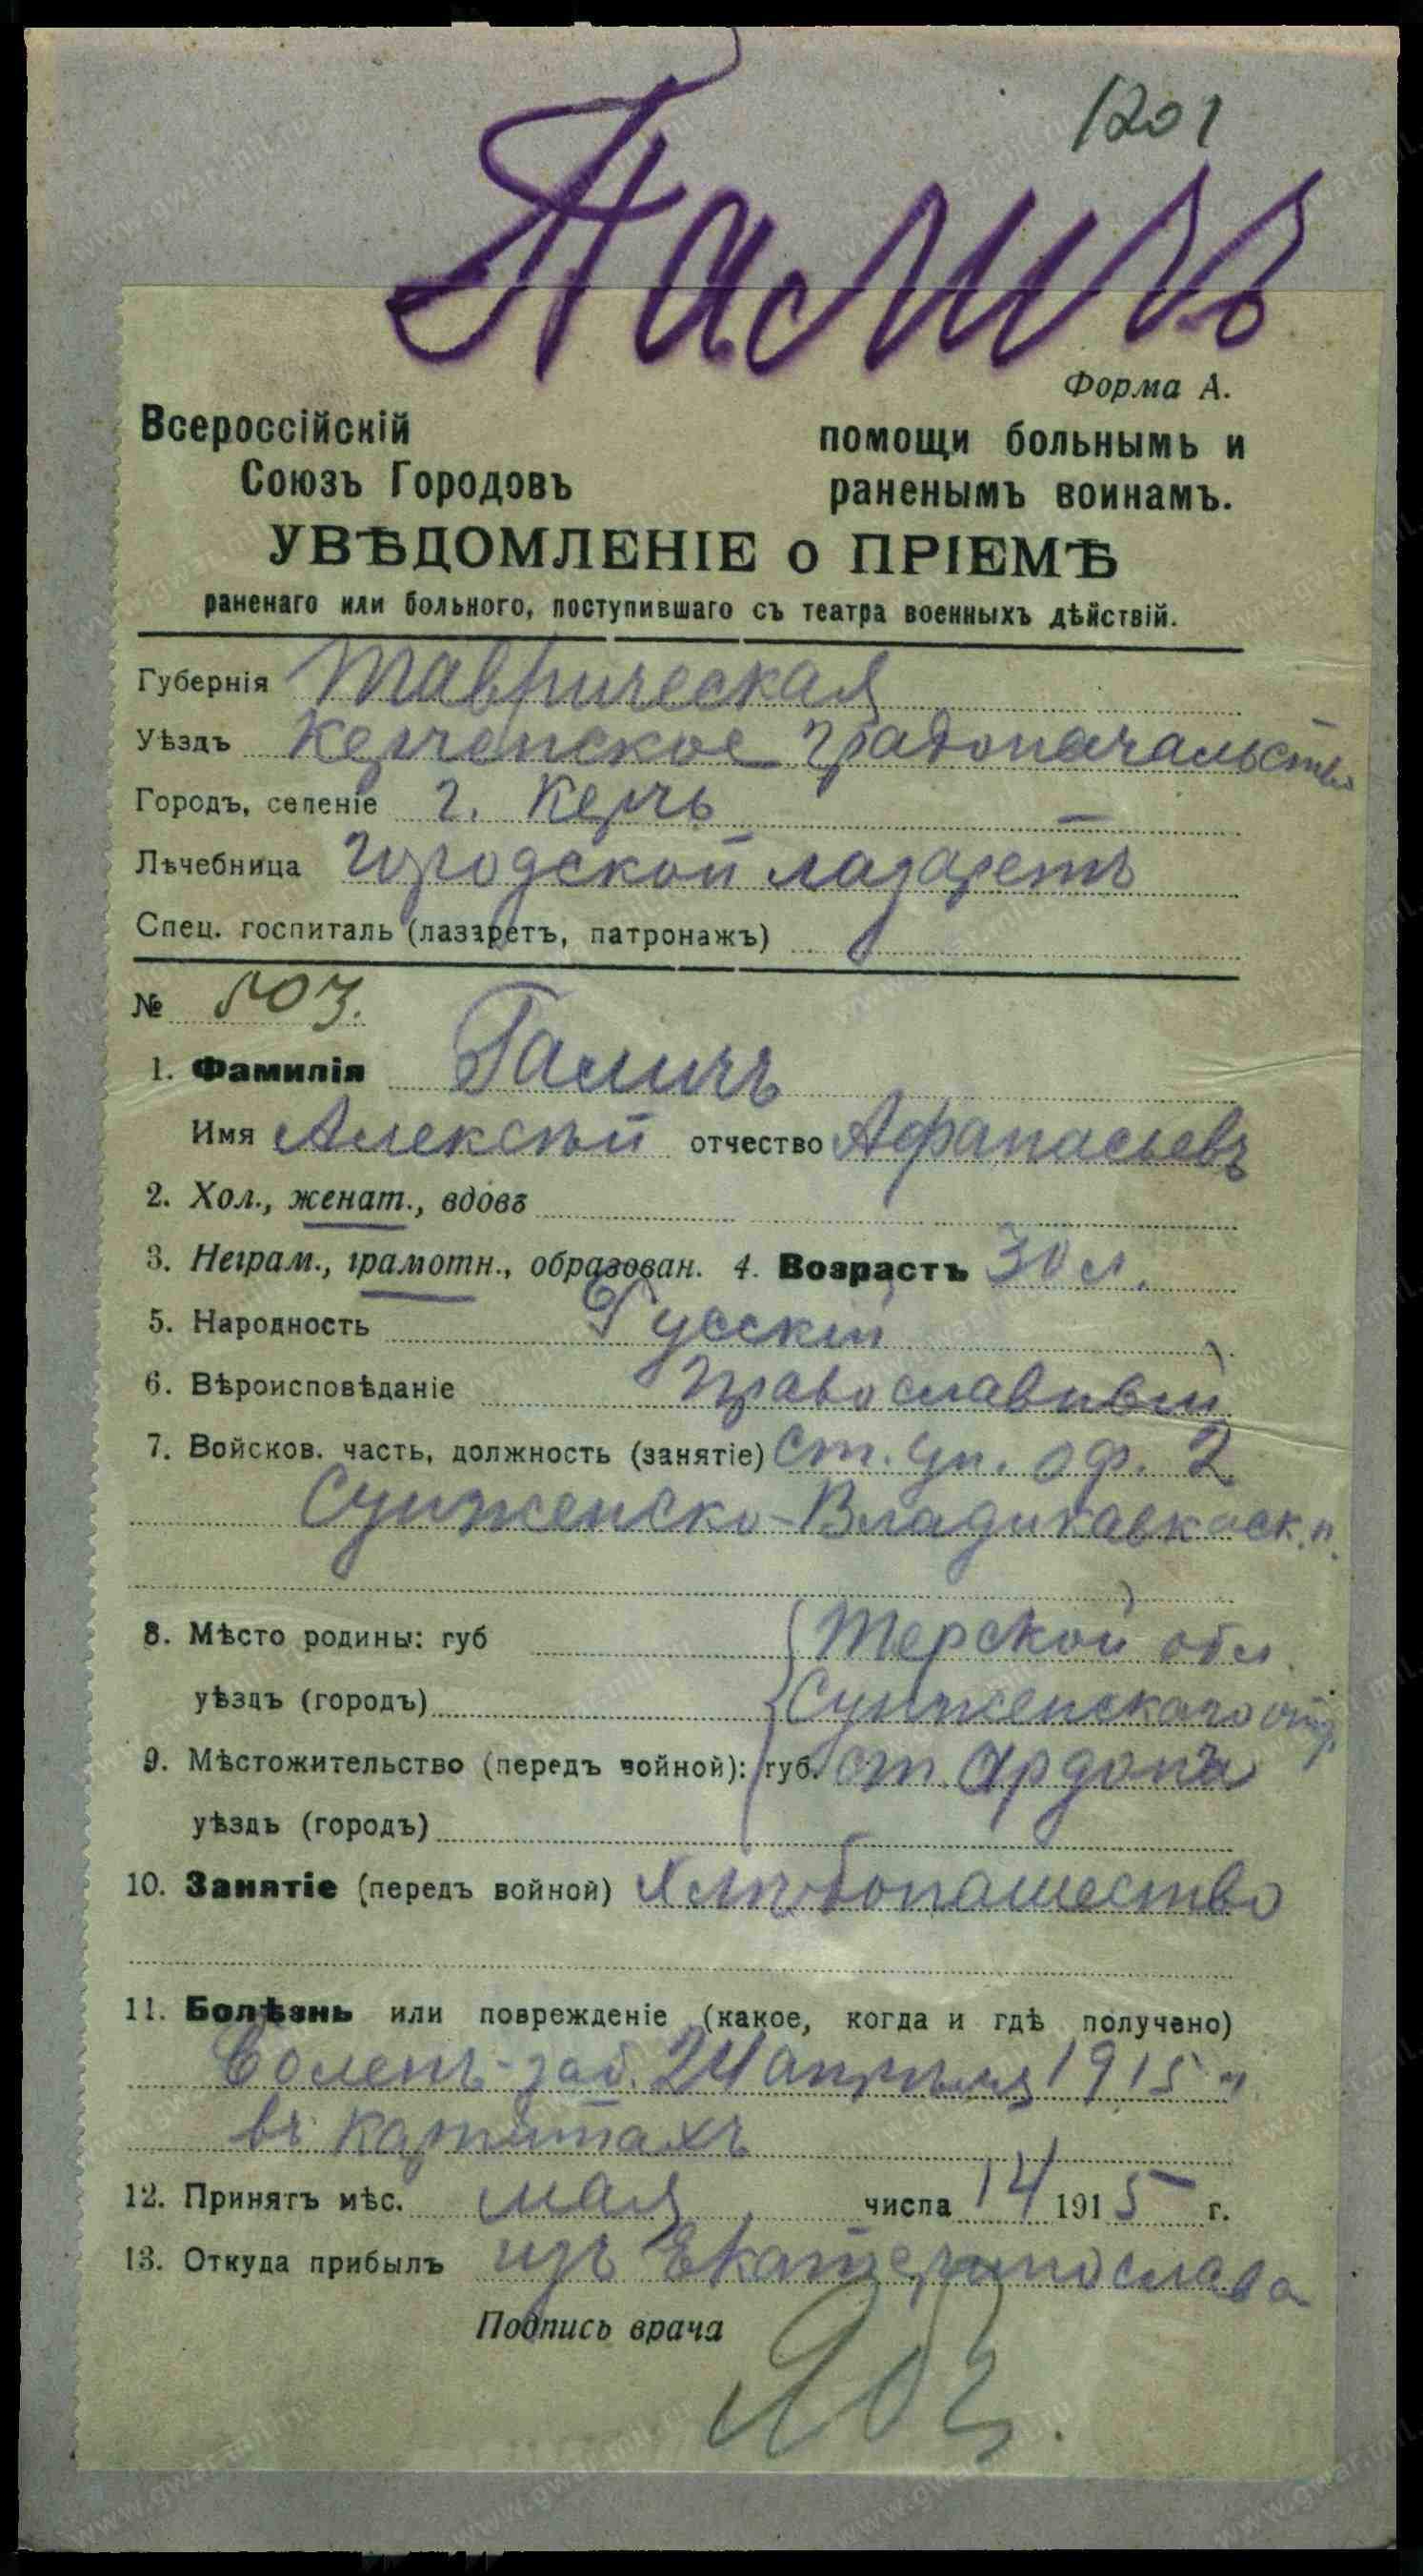 1201
Галичъ
Форма А.
Всероссійскій
Союзъ Городовъ
помощи больнымъ и
раненымъ воинамъ.
УВѢДОМЛЕНІЕ о ПРІЕМѢ
раненаго или больного, поступившаго съ театра военныхъ дѣйствій.
Губернія Таврическая
Уѣздъ Керченское градоначальство
Городъ, селеніе г. Керчь
Лѣчебница Городской лазаретъ
Спец. госпиталь (лазаретъ, патронажъ)
№ 503.
1. Фамилія Галичъ
Имя Алексѣй отчество Афанасьевъ
2. Хол., женат., вдовъ
3. Неграм., грамотн., образован. 4. Возрастъ 30 л.
5. Народность Русскій
6. Вѣроисповѣданіе Православный
7. Войсков. часть, должность (занятіе) Ст. ун. оф. 2
Сунженско-Владикавкаск. п.
8. Мѣсто родины: губ Терской обл
уѣздъ (городъ) Сунженскаго отд.
9. Мѣстожительство (передъ войной): губ. ст. Ардонъ
уѣздъ (городъ)
10. Занятіе (передъ войной) Хлѣбопашество
11. Болѣзнь или поврежденіе (какое, когда и гдѣ получено)
Боленъ-заб. 24 апрѣля 1915 г.
въ Карпатахъ
12. Принятъ мѣс. мая числа 14 1915 г.
13. Откуда прибылъ изъ Екатеринослава
Подпись врача